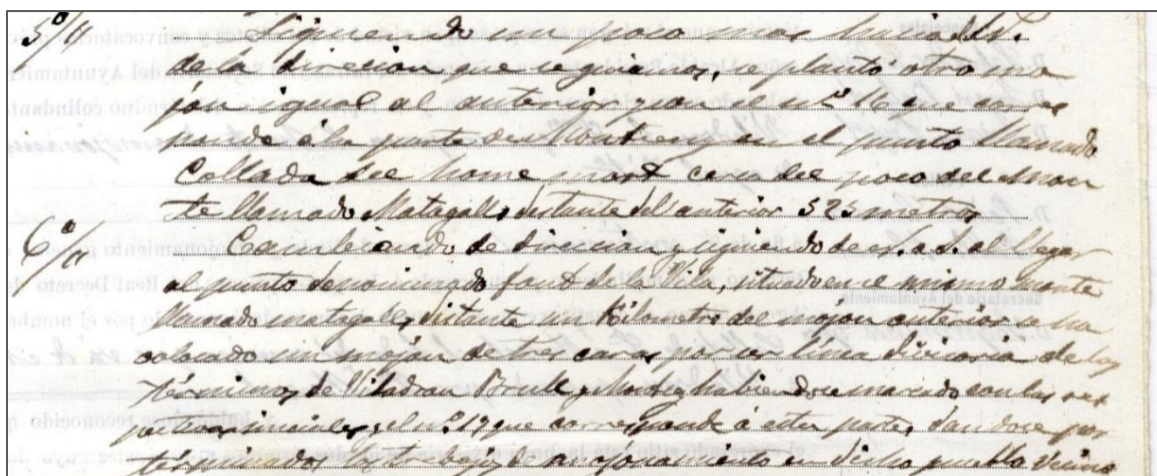 5º// Siguiendo un poco mas hacia el S.
de la direcion que seguiamos, se planto otro mo
jon igual al anterior, con el nº 16 que corres
ponde á la parte de Montseny en el punto llamado
Collada del home mort cerca del poco del mon
te llamado Matagalls distante del anterior 525 metros
6º// Cambeando de direccion y siguiendo de esta S. al llegar
al punto denominado font de la Vila, situado en el mismo monte
llamado matagalls, distante un Kilometro del mojon anterior se ha
colocado un mojon de tres caras por ser linea divisoria de los
términos de Viladrau Brull y Montseny habiendose marcado con las res
pectivas iniciales y el nº 17 que corresponde á esta parte, dandose por
terminado el de amojonamiento en dicho pueblo vecino